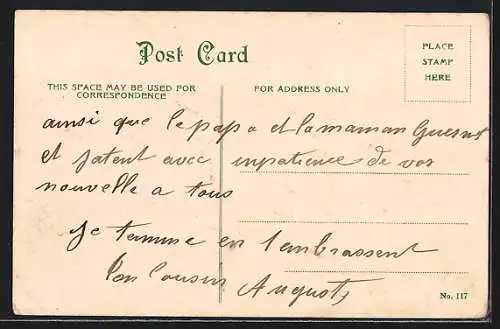 Post Card
PLACE
STAMP
HERE
THIS SPACE MAY BE USED FOR
CORRESPONDENCE
FOR ADDRESS ONLY
ainsi que le papa et la maman
et jatent avec inpatience de vos
nouvelle a tous
Je termine en t'embrassent
ton cousin
August
No. 117